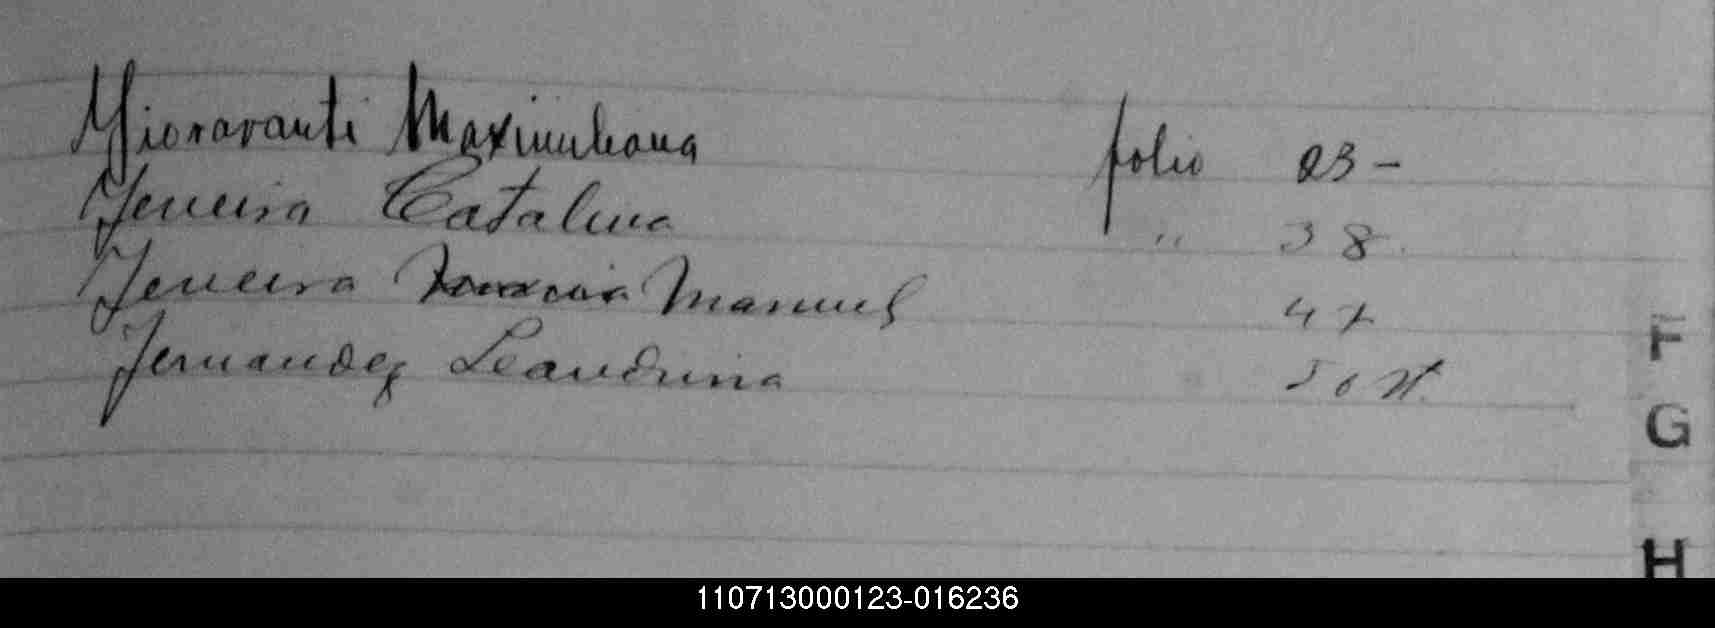 Fioravanti Maximiliana folio 23-
Ferreira Catalina " 38
Ferreira Manuel 47
Fernandez Leandrina 50 vt.
F
G
H
110713000123-016236